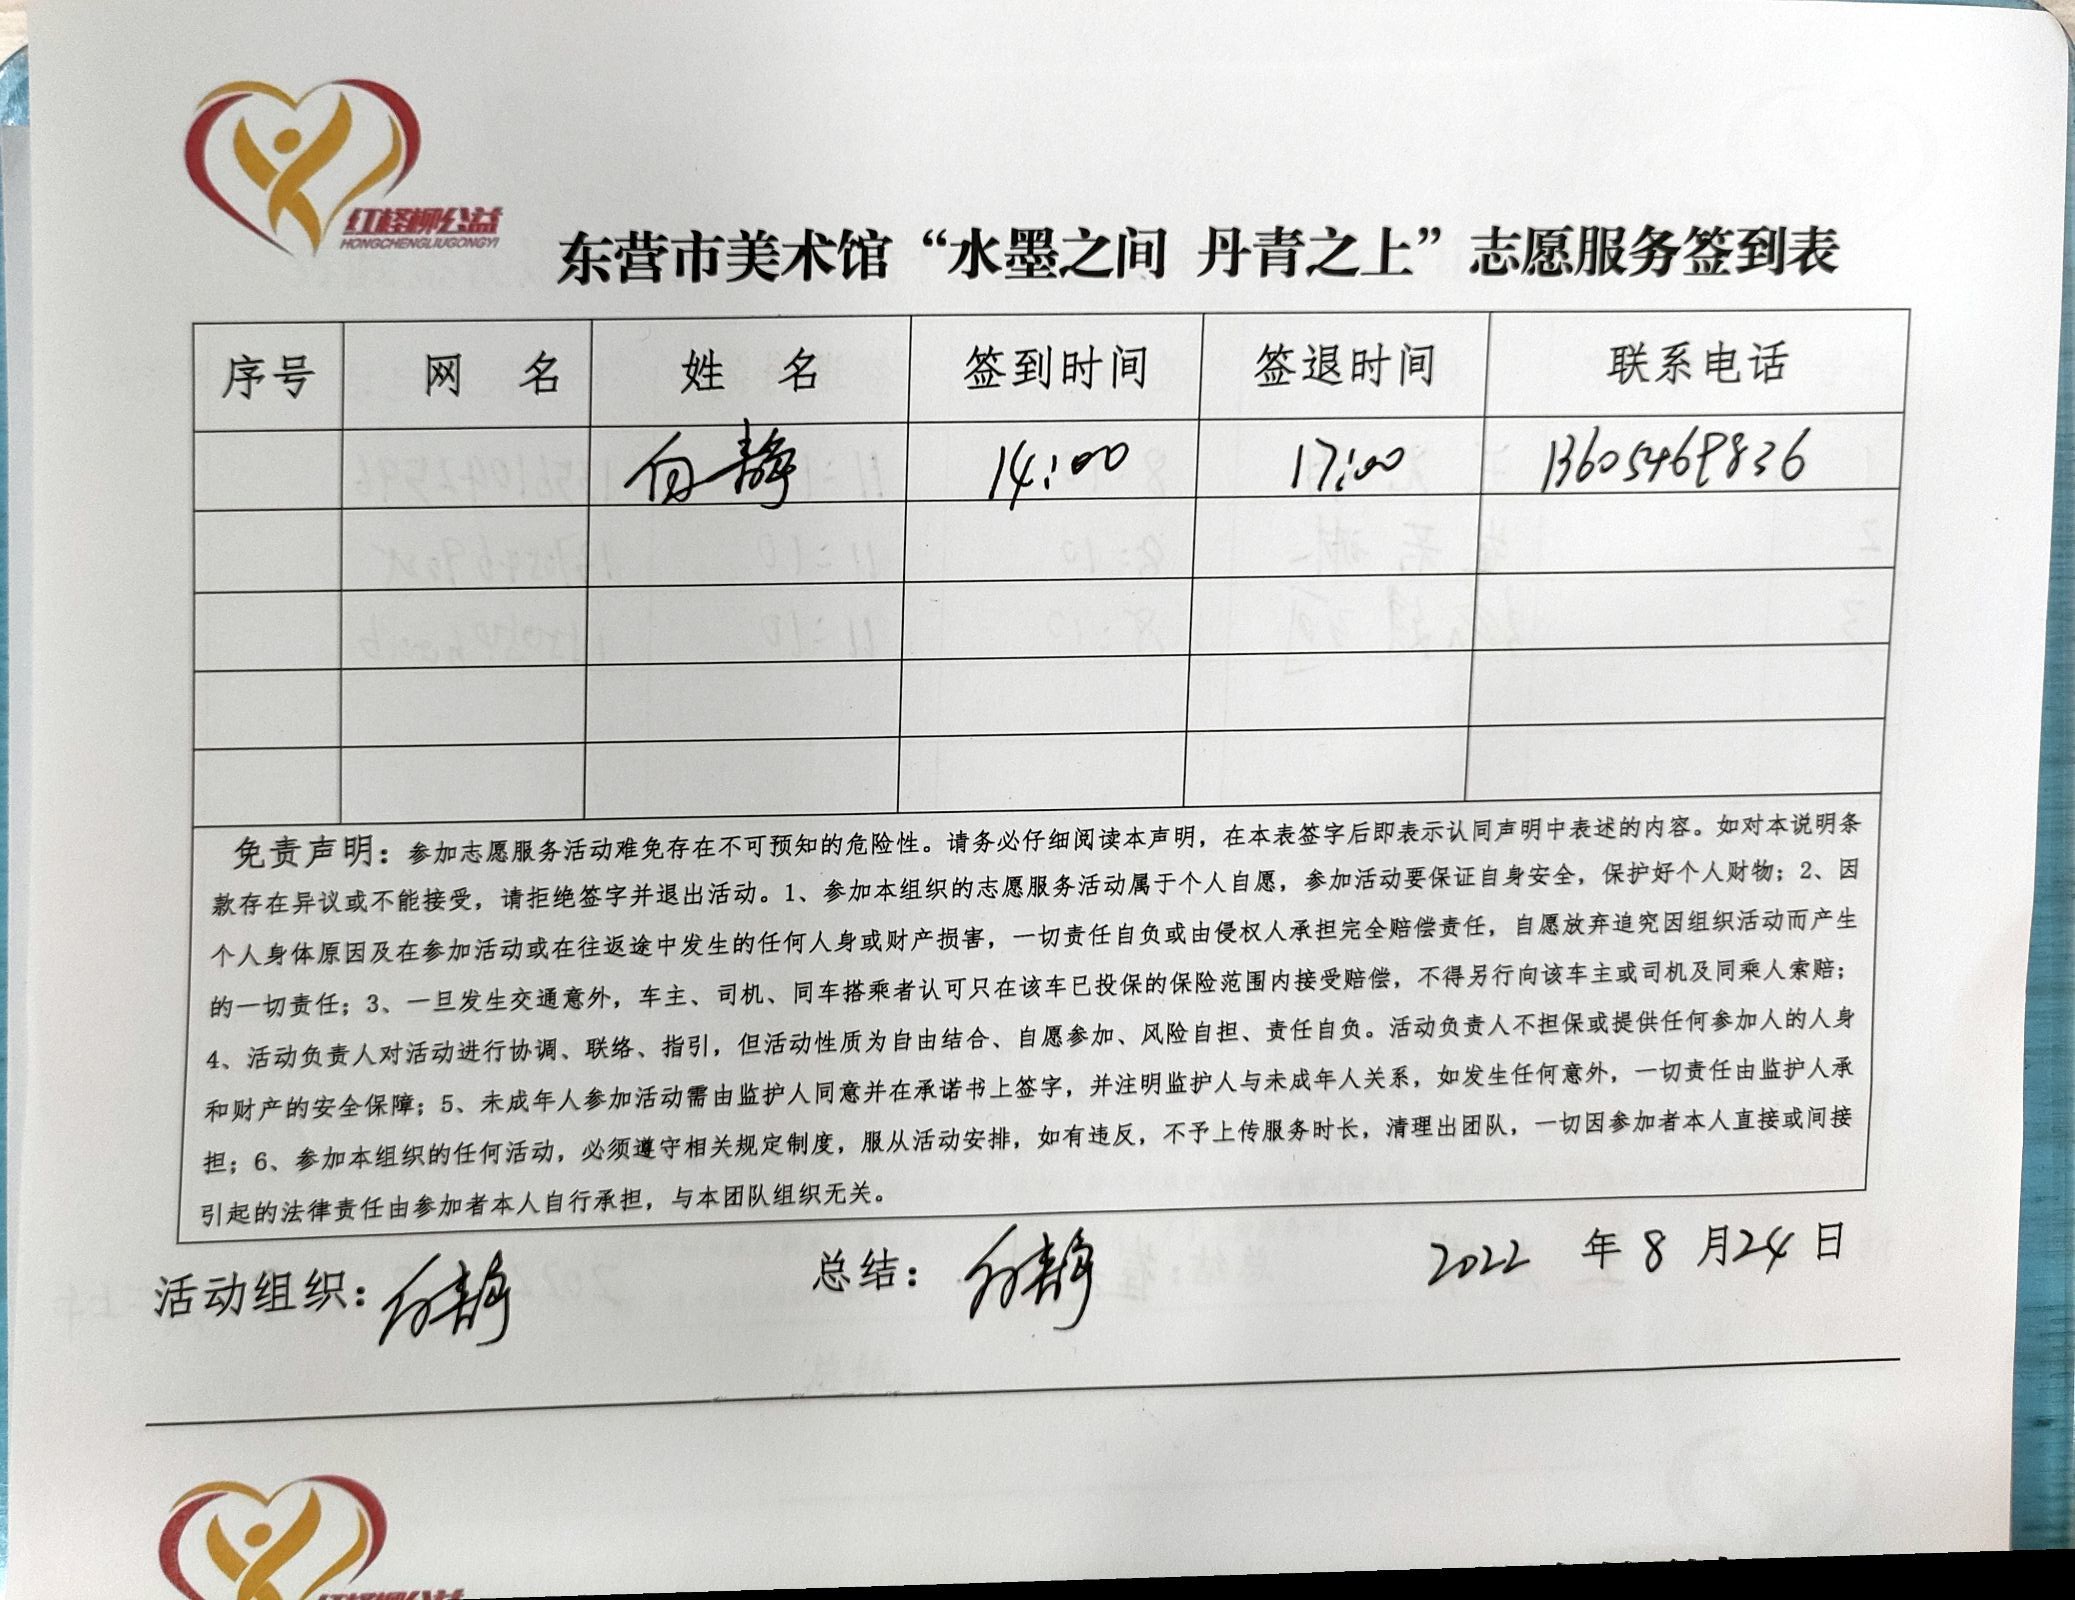 红柽柳公益
HONGCHENGLIUGONGYI
东营市美术馆“水墨之间 丹青之上”志愿服务签到表
序号 网 名 姓 名 签到时间 签退时间 联系电话
向静 14:00 17:00 13605469836
免责声明：参加志愿服务活动难免存在不可预知的危险性。请务必仔细阅读本声明，在本表签字后即表示认同声明中表述的内容。如对本说明条
款存在异议或不能接受，请拒绝签字并退出活动。1、参加本组织的志愿服务活动属于个人自愿，参加活动要保证自身安全，保护好个人财物；2、因
个人身体原因及在参加活动或在往返途中发生的任何人身或财产损害，一切责任自负或由侵权人承担完全赔偿责任，自愿放弃追究因组织活动而产生
的一切责任；3、一旦发生交通意外，车主、司机、同车搭乘者认可只在该车已投保的保险范围内接受赔偿，不得另行向该车主或司机及同乘人索赔；
4、活动负责人对活动进行协调、联络、指引，但活动性质为自由结合、自愿参加、风险自担、责任自负。活动负责人不担保或提供任何参加人的人身
和财产的安全保障；5、未成年人参加活动需由监护人同意并在承诺书上签字，并注明监护人与未成年人关系，如发生任何意外，一切责任由监护人承
担；6、参加本组织的任何活动，必须遵守相关规定制度，服从活动安排，如有违反，不予上传服务时长，清理出团队，一切因参加者本人直接或间接
引起的法律责任由参加者本人自行承担，与本团队组织无关。
活动组织：向静 总结：向静 2022 年 8 月 24 日